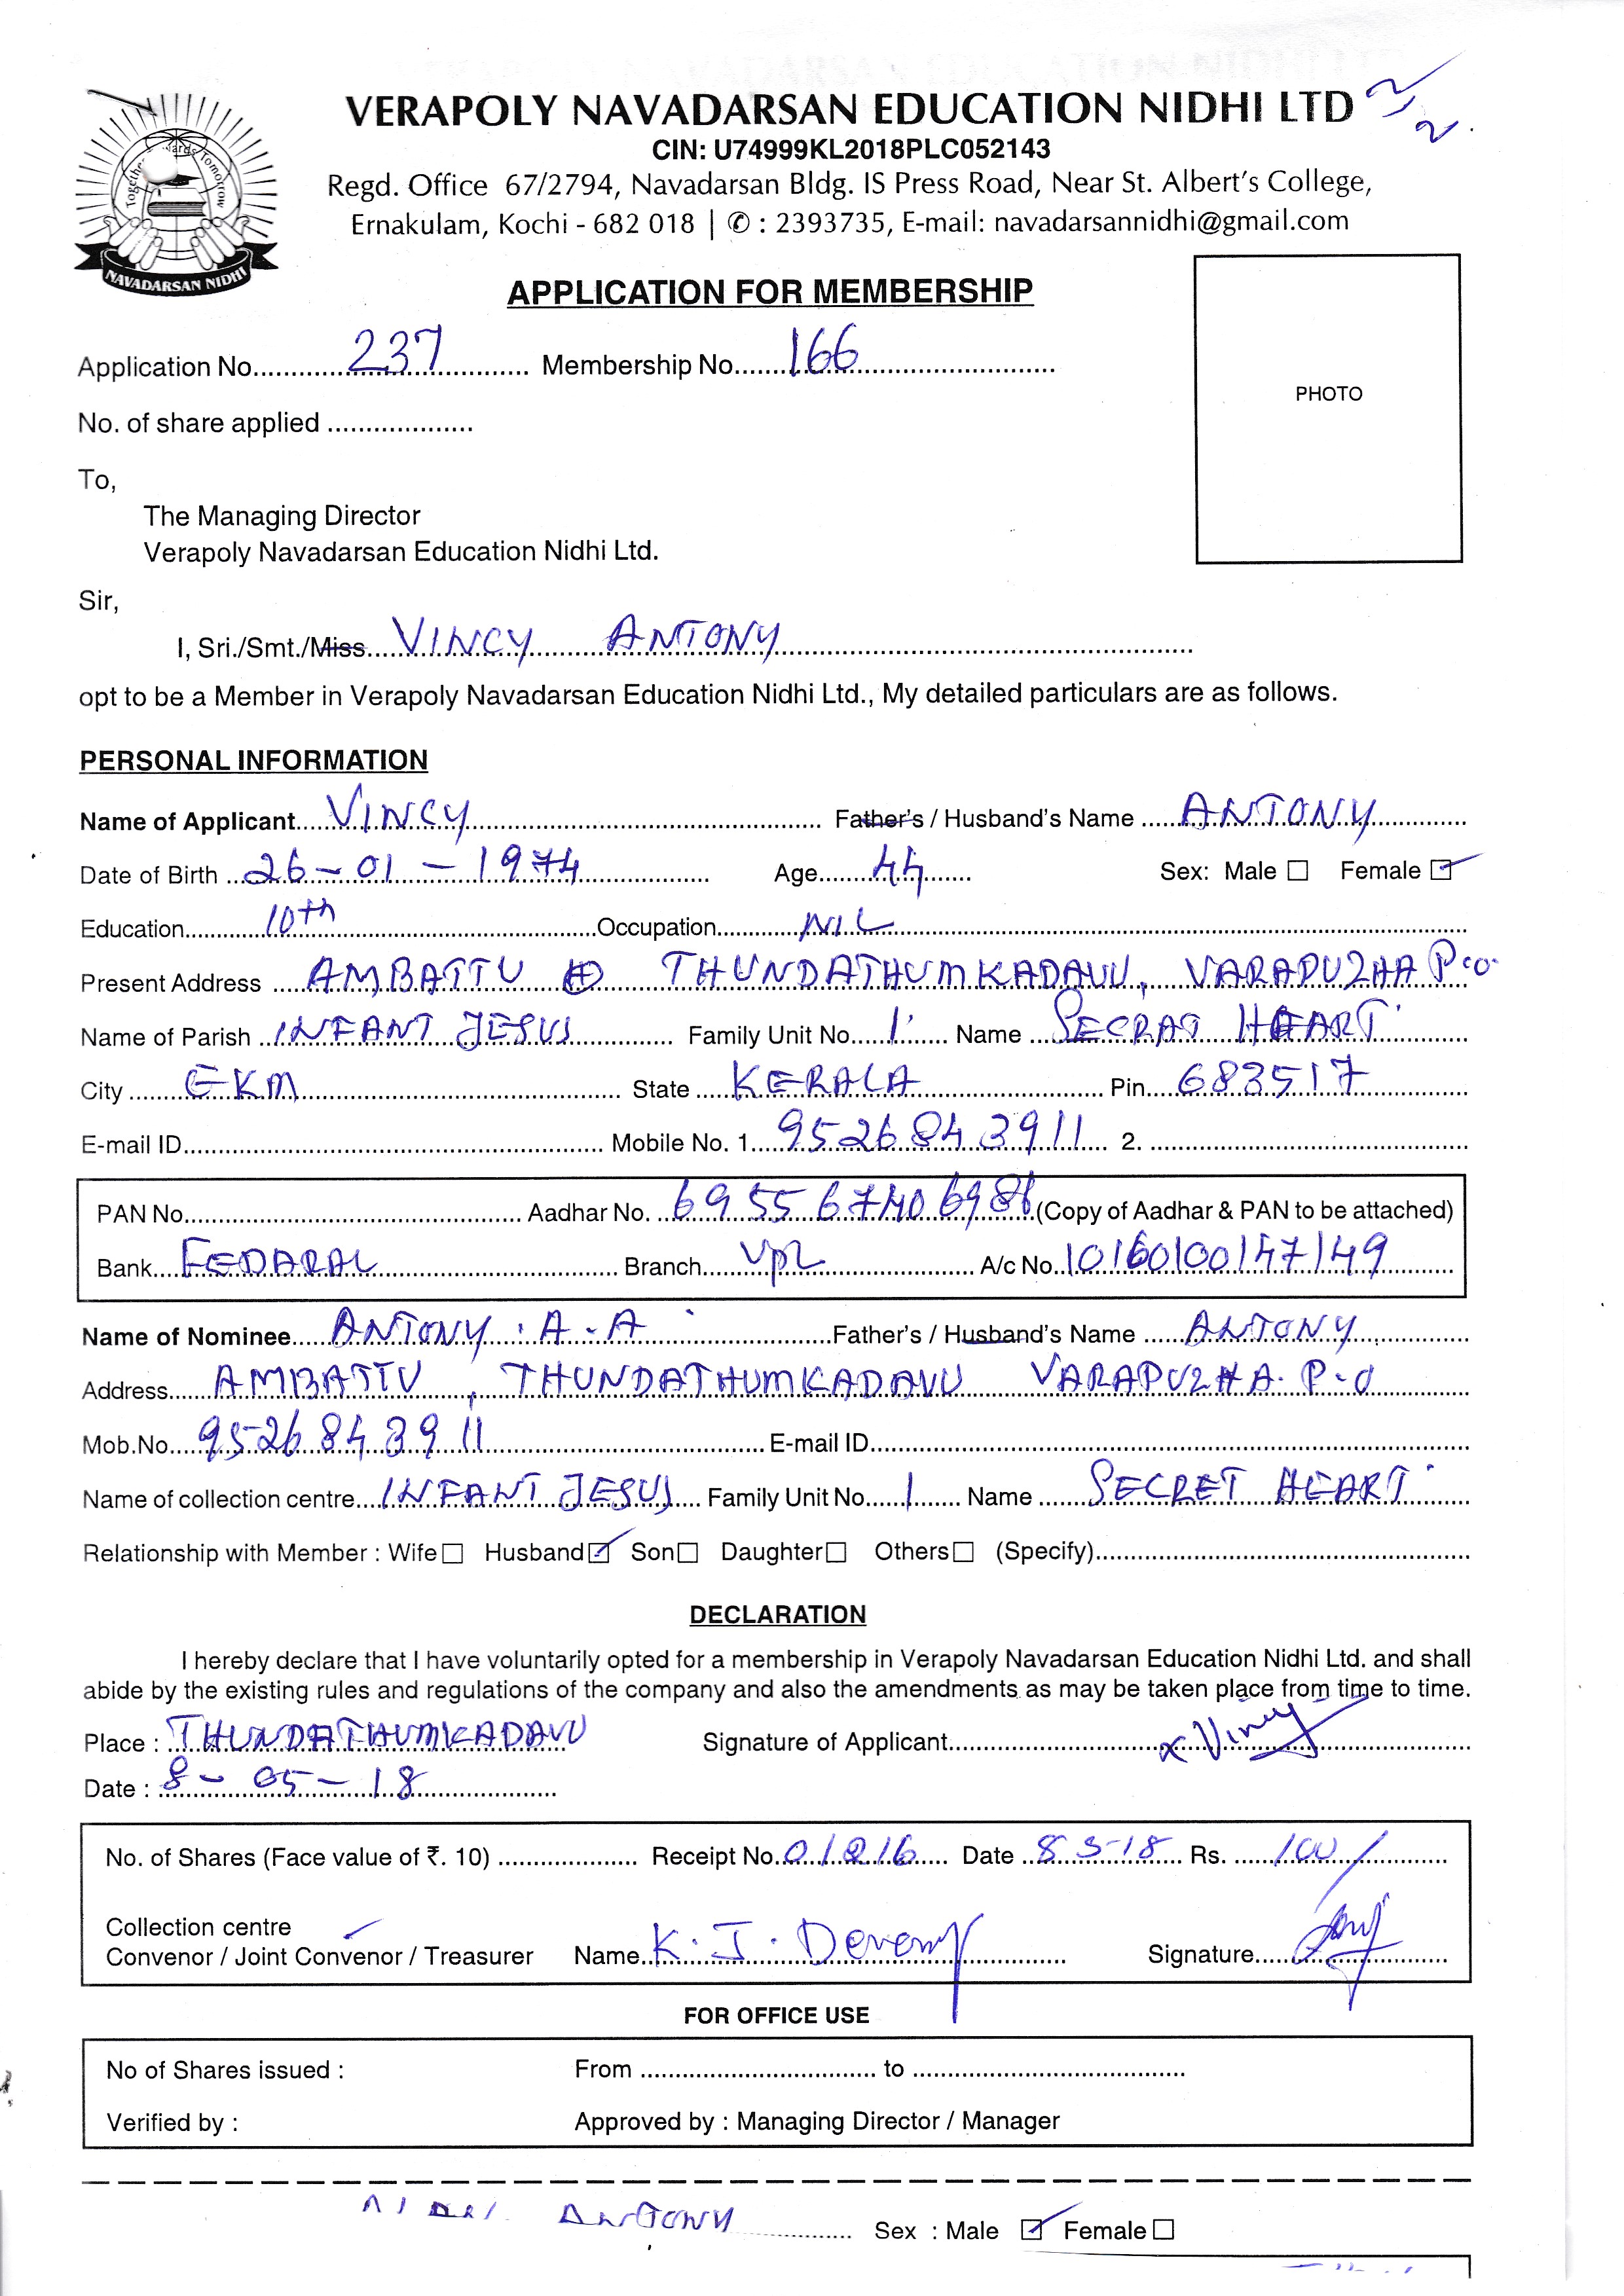 VERAPOLY NAVADARSAN EDUCATION NIDHI LTD
CIN: U74999KL2018PLC052143
Regd. Office 67/2794, Navadarsan Bldg. IS Press Road, Near St. Albert's College,
Ernakulam, Kochi - 682 018 | ✆ : 2393735, E-mail: navadarsannidhi@gmail.com
NAVADARSAN NIDHI
APPLICATION FOR MEMBERSHIP
Application No. 237 Membership No. 166
PHOTO
No. of share applied
To,
The Managing Director
Verapoly Navadarsan Education Nidhi Ltd.
Sir,
I, Sri./Smt./Miss VINCY ANTONY
opt to be a Member in Verapoly Navadarsan Education Nidhi Ltd., My detailed particulars are as follows.
PERSONAL INFORMATION
Name of Applicant VINCY Father's / Husband's Name ANTONY
Date of Birth 26-01-1974 Age 44 Sex: Male Female
Education 10th Occupation NIL
Present Address AMBATTU THUNDATHUMKADAVU, VARAPUZHA P.O
Name of Parish INFANT JESUS Family Unit No. 1 Name SECRAT HEART
City EKM State KERALA Pin 683517
E-mail ID Mobile No. 1. 9526843911 2.
PAN No. Aadhar No. 6955 6740 (Copy of Aadhar & PAN to be attached)
Bank FEDARAL Branch VPL A/c No. 10160100147149
Name of Nominee ANTONY . A . A Father's / Husband's Name ANTONY
Address AMBATTU, THUNDATHUMKADAVU VARAPUZHA. P.O
Mob.No. 9526843911 E-mail ID
Name of collection centre INFANT JESUS Family Unit No. 1 Name SECRET HEART
Relationship with Member : Wife Husband Son Daughter Others (Specify)
DECLARATION
I hereby declare that I have voluntarily opted for a membership in Verapoly Navadarsan Education Nidhi Ltd. and shall
abide by the existing rules and regulations of the company and also the amendments as may be taken place from time to time.
Place : THUNDATHUMKADAVU Signature of Applicant x Vincy
Date : 8-05-18
No. of Shares (Face value of ₹. 10) Receipt No. Date Rs. 100/
Collection centre
Convenor / Joint Convenor / Treasurer Name K. J. Signature
FOR OFFICE USE
No of Shares issued : From to
Verified by : Approved by : Managing Director / Manager
ANTONY Sex : Male Female